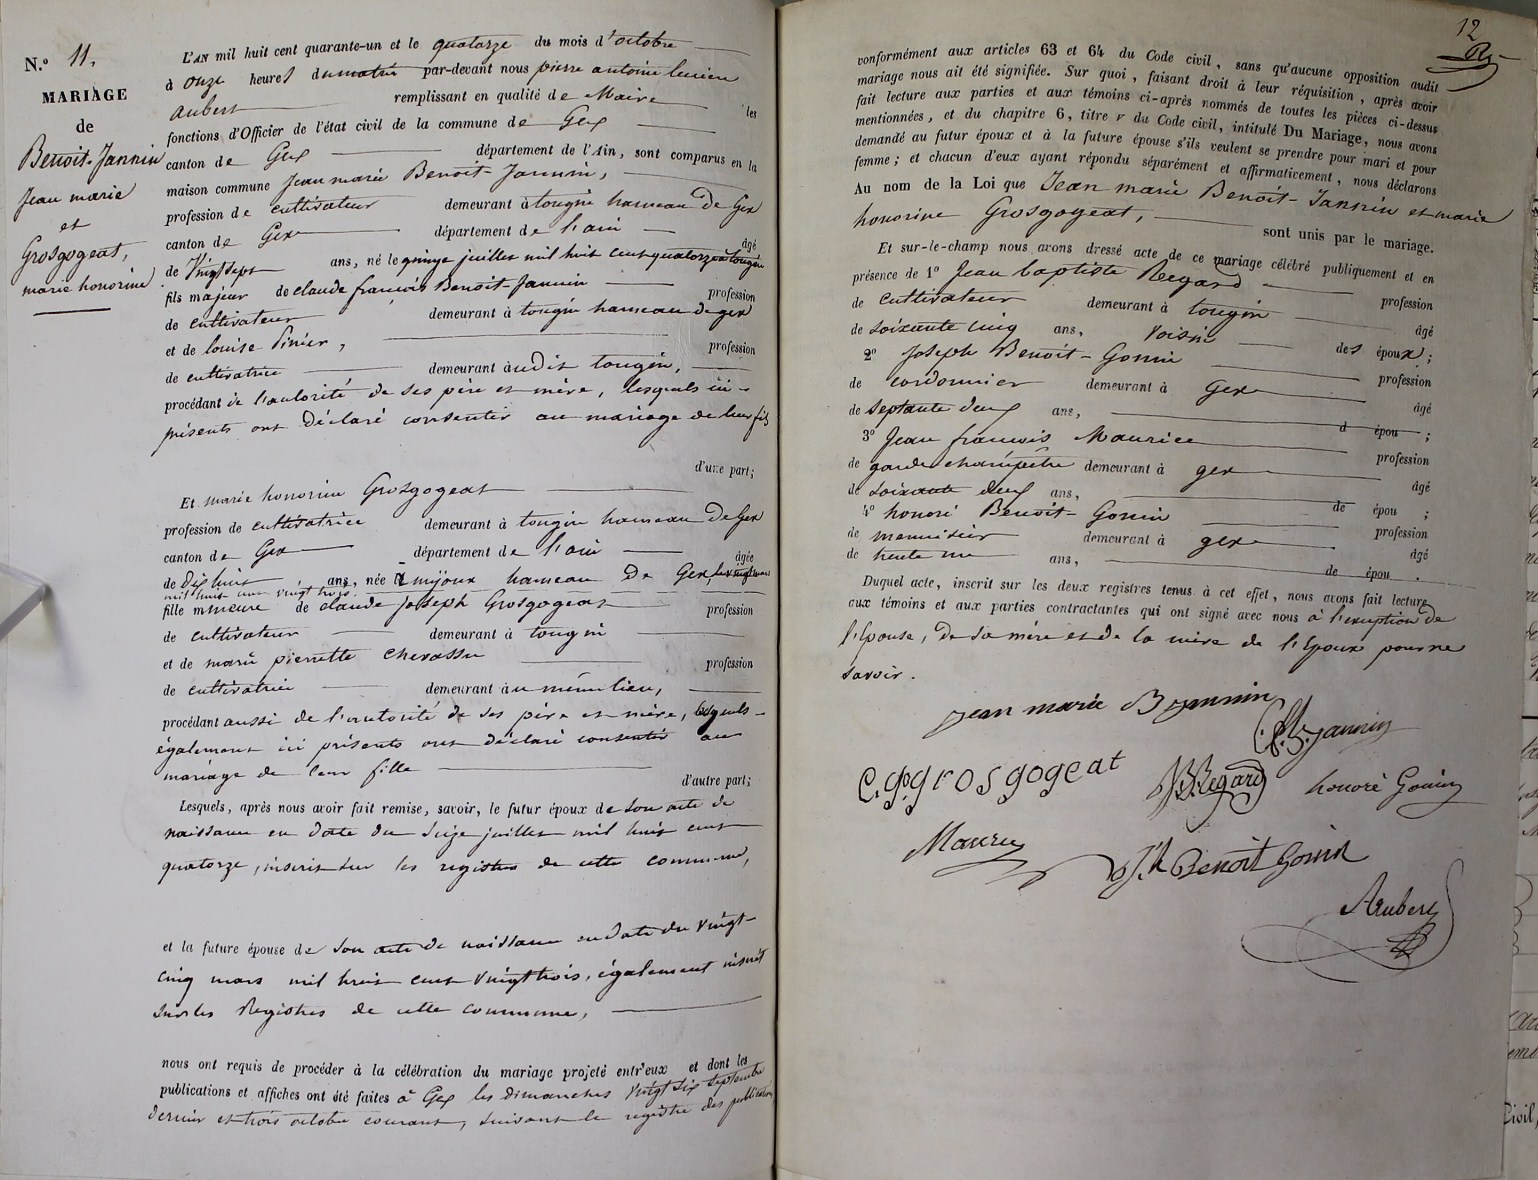 N.° 11.
MARIAGE
de
Benoit-Jannin
Jean marie
et
Grosgogeat,
marie honorine
L'AN mil huit cent quarante-un et le quatorze du mois d'octobre
à onze heures du matin par-devant nous pierre antoine lucien
Aubert remplissant en qualité de Maire les
fonctions d'Officier de l'état civil de la commune de Gex
canton de Gex département de l'Ain, sont comparus en la
maison commune Jean marie Benoit-Jannin,
profession de cultivateur demeurant à tougin hameau de Gex
canton de Gex département de l'ain âgé
de Vingt sept ans, né le quinze juillet mil huit cent quatorze à tougin
fils majeur de claude françois Benoit-Jannin profession
de cultivateur demeurant à tougin hameau de gex
et de louise Pinier, profession
de cultivatrice demeurant audit tougin,
procédant de l'autorité de ses père et mère, lesquels ici
présents ont déclaré consentir au mariage de leur fils
d'une part;
Et marie honorine Grosgogeat
profession de cultivatrice demeurant à tougin hameau de Gex
canton de Gex département de l'ain âgée
de dix huit ans, née à mijoux hameau de Gex, le vingt mars
mil huit cent vingt trois
fille mineure de claude joseph Grosgogeat profession
de cultivateur demeurant à tougin
et de marie pierrette chevassu profession
de cultivatrice demeurant au même lieu,
procédant aussi de l'autorité de ses père et mère, lesquels
également ici présents ont déclaré consentir au
mariage de leur fille d'autre part;
Lesquels, après nous avoir fait remise, savoir, le futur époux de son acte de
naissance en date du seize juillet mil huit cent
quatorze, inscrit sur les registres de cette commune,
et la future épouse de son acte de naissance en date du vingt-
cinq mars mil huit cent vingt trois, également inscrit
sur les Registres de cette commune,
nous ont requis de procéder à la célébration du mariage projeté entr'eux et dont les
publications et affiches ont été faites à Gex les dimanches vingt six septembre
dernier et trois octobre courant, suivant le registre des publications
12
conformément aux articles 63 et 64 du Code civil, sans qu'aucune opposition audit
mariage nous ait été signifiée. Sur quoi, faisant droit à leur réquisition, après avoir
fait lecture aux parties et aux témoins ci-après nommés de toutes les pièces ci-dessus
mentionnées, et du chapitre 6, titre v du Code civil, intitulé Du Mariage, nous avons
demandé au futur époux et à la future épouse s'ils veulent se prendre pour mari et pour
femme; et chacun d'eux ayant répondu séparément et affirmativement, nous déclarons
Au nom de la Loi que Jean marie Benoit-Jannin et marie
honorine Grosgogeat, sont unis par le mariage.
Et sur-le-champ nous avons dressé acte de ce mariage célébré publiquement et en
présence de 1° Jean baptiste Regard profession
de cultivateur demeurant à tougin âgé
de soixante cinq ans, voisin des époux;
2° Joseph Benoit-Gonin profession
de cordonnier demeurant à Gex âgé
de septante deux ans, d épou ;
3° Jean françois Maurice profession
de garde champêtre demeurant à gex âgé
de soixante deux ans, de épou ;
4° honoré Benoit-Gonin profession
de menuisier demeurant à gex âgé
de trente un ans, de épou .
Duquel acte, inscrit sur les deux registres tenus à cet effet, nous avons fait lecture
aux témoins et aux parties contractantes qui ont signé avec nous à l'exception de
l'épouse, de sa mère et de la mère de l'époux pour ne
savoir.
jean marie B jannin
C. f. B. jannin
C. j. grosgogeat JB Regard honoré Gonin
Maurice Jh Benoit Gonin
Aubert